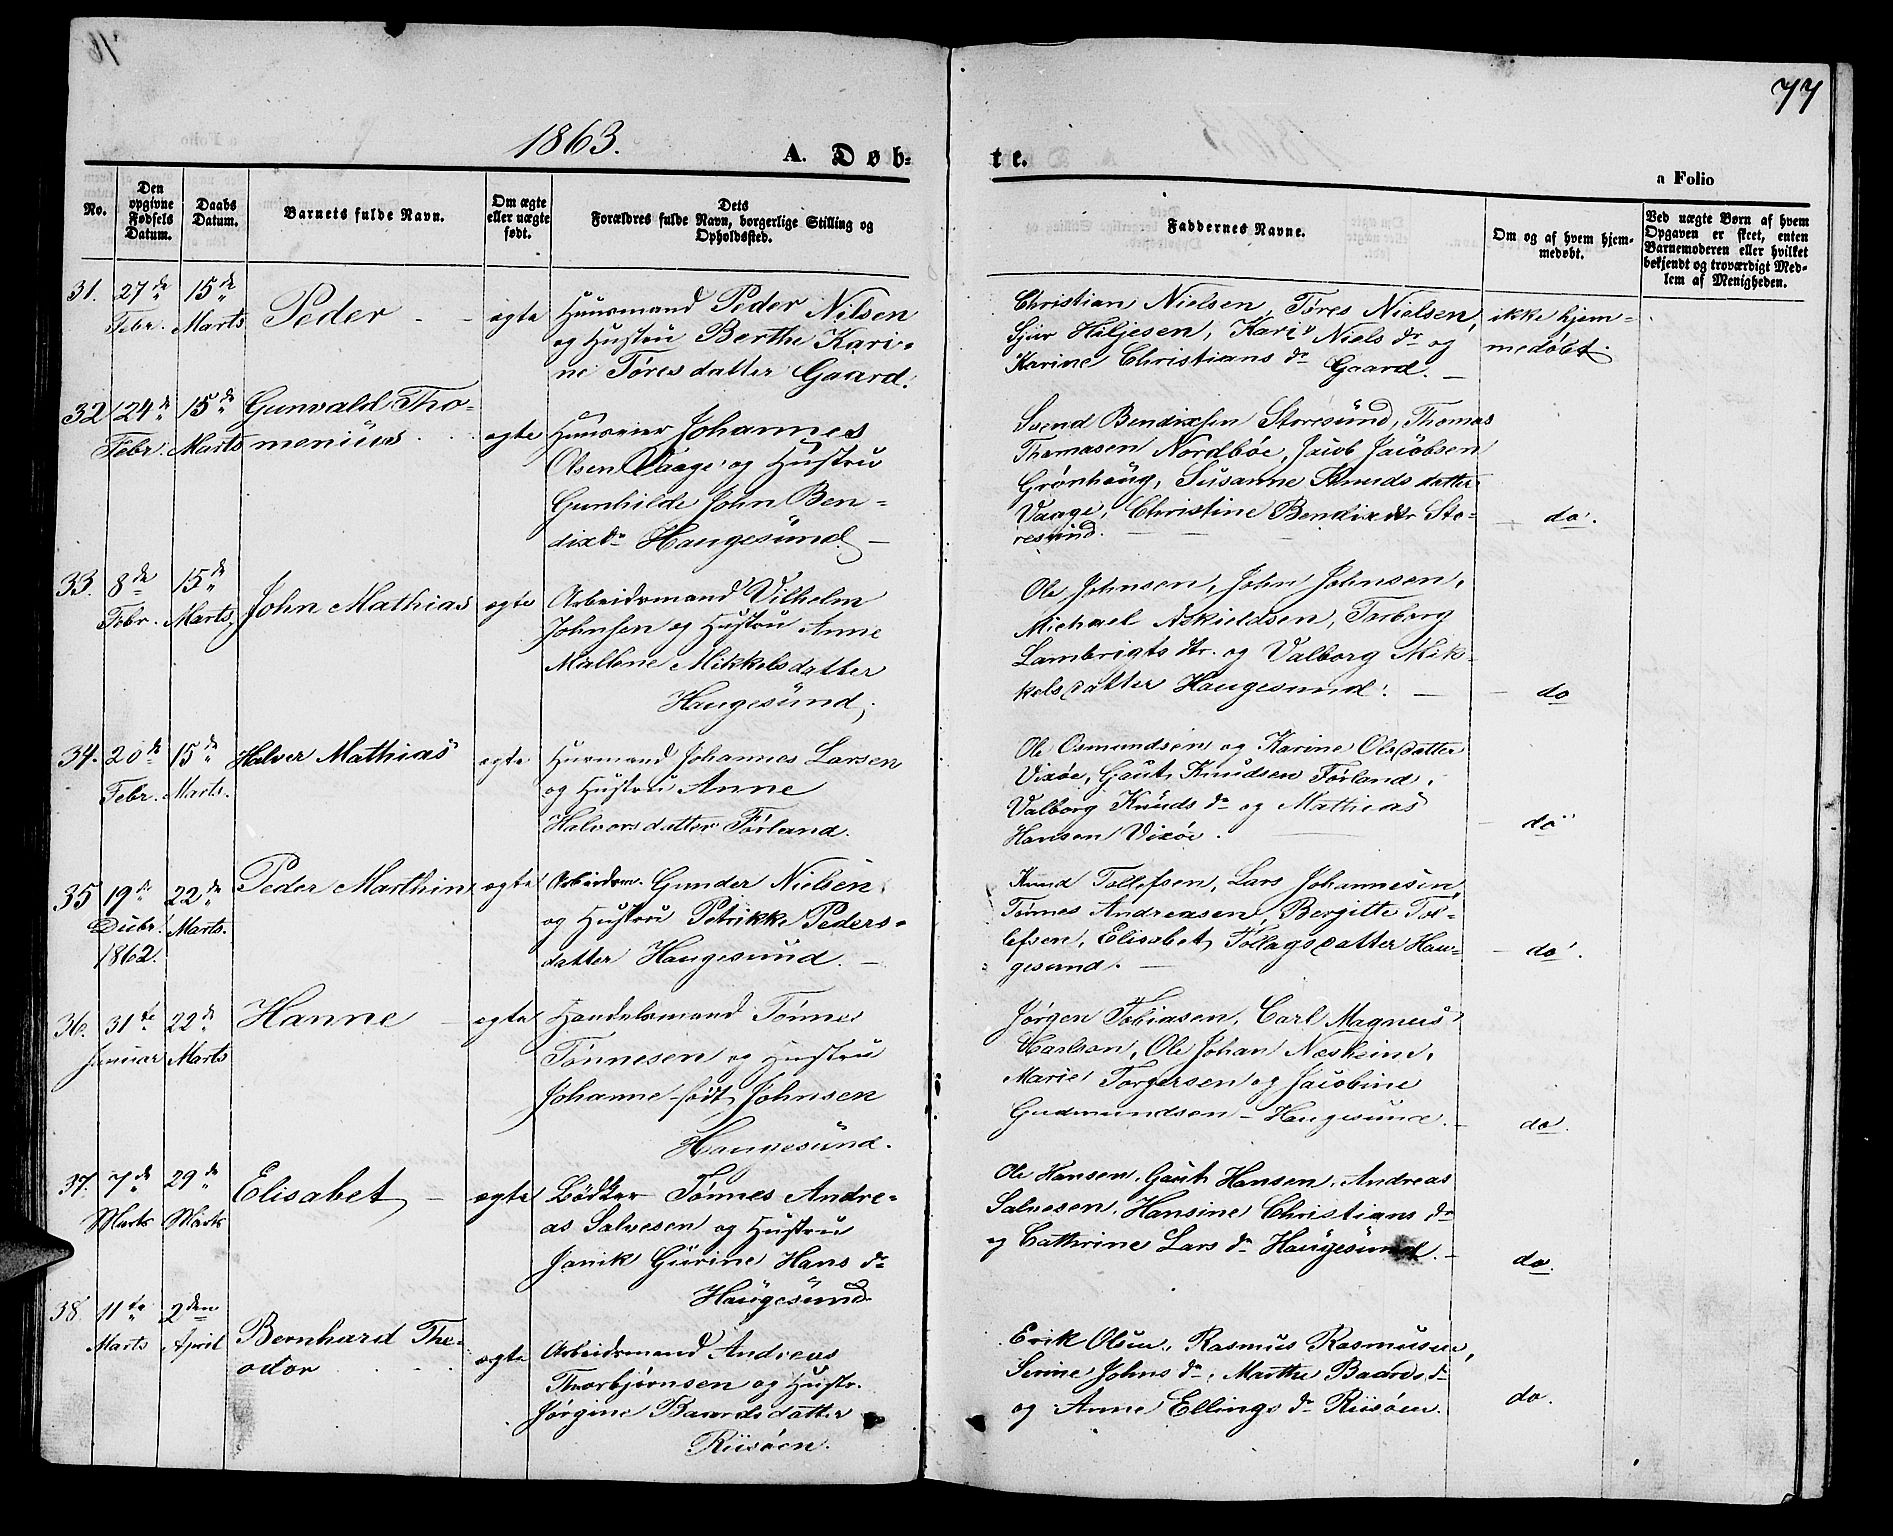 77
1863.
A. Døb-
te.
a Folio
No.
Den opgivne Fødsels Datum.
Daabs Datum.
Barnets fulde Navn.
Om ægte eller uægte født.
Dets Forældres fulde Navn, borgerlige Stilling og Opholdssted.
Faddernes Navne.
Om og af hvem hjem-
medøbt.
Ved uægte Børn af hvem
Opgaven er skeet, enten
Barnemoderen eller hvilket
bekjendt og troværdigt Med-
lem af Menigheden.
31. 27de Febr. 15de Marts Peder ægte
Huusmand Peder Nilsen
og Hustru Berthe Kari-
ne Tøresdatter Gaard.
Christian Nielsen, Tøres Nielsen,
Sjur Hiljesen, Kari Niels dr og
Karine Christians dr Gaard.
ikke hjem-
medøbt.
32 24de Febr. 15de Marts Gunvald Tho-
menius ægte
Huuseier Johannes
Olsen Vaage og Hustru
Gunhilde John Ben-
dixdr Haugesund.
Svend Bendixsen Storesund, Thomas
Thomasen Nordbøe, Jacob Jacobsen
Grønhaug, Susanne Knudsdatter
Vaage, Christine Bendixdtr Sto-
resund.
do.
33. 8de Febr. 15de Marts John Mathias ægte
Arbeidsmand Vilhelm
Johnsen og Hustru Anne
Mallene Mikkelsdatter
Haugesund,
Ole Johnsen, John Johnsen,
Michael Askieldsen, Torborg
Lambrigts dtr. og Valborg Mik-
kelsdatter Haugesund.
do
34. 20de Febr. 15de Marts. Halver Mathias ægte
Huusmand Johannes Larsen
og Hustru Anne
Halvorsdatter Førland.
Ole Osmundsen og Karine Olsdatter
Vixøe, Gaut Knudsen Førland,
Valborg Knuds dr og Mathias
Hansen Vixøe.
do
35 19de Decbr. 1862. 22de Marts. Peder Marthin ægte
Arbeidsm. Gunder Nielsen
og Hustru Petrikke Peders-
datter Haugesund.
Knud Tollefsen, Lars Johannesen,
Tønnes Andreasen, Bergitte Tol-
lefsen, Elisabet Tollagsdatter Hau-
gesund.
do.
36. 31te Januar 22de Marts Hanne ægte
Handelsmand Tønnes
Tønnesen og Hustru
Johanne født Johnsen
Haugesund.
Jørgen Tobiasen, Carl Magnus
Karlson, Ole Johan Nesheim,
Marie Torgersen og Jacobine
Gudmundsen - Haugesund.
do.
37. 7de Marts 29de Marts Elisabet ægte
Bødker Tønnes Andre-
as Salvesen og Hustru
Janik Gurine Hans dr
Haugesund.
Ole Hansen, Gaut Hansen, Andreas
Salvesen, Hansine Christians dr
og Cathrine Lars dr Haugesund.
do.
38. 11te Marts 2den April Bernhard The-
odor ægte
Arbeidsmand Andreas
Thorbjørnsen og Hustr.
Jørgine Baardsdatter
Riisøen.
Erik Olsen, Rasmus Rasmusen,
Serine Johns dr, Marthe Baards dr
og Anne Ellings dr Riisøen.
do.